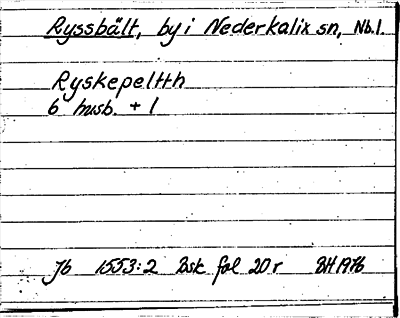 Ryssbält, by i Nederkalix sn, Nb.l.
Ryskepeltth
6 husb. + 1
Jb 1553:2 Bsk fol 20 r BH 1976